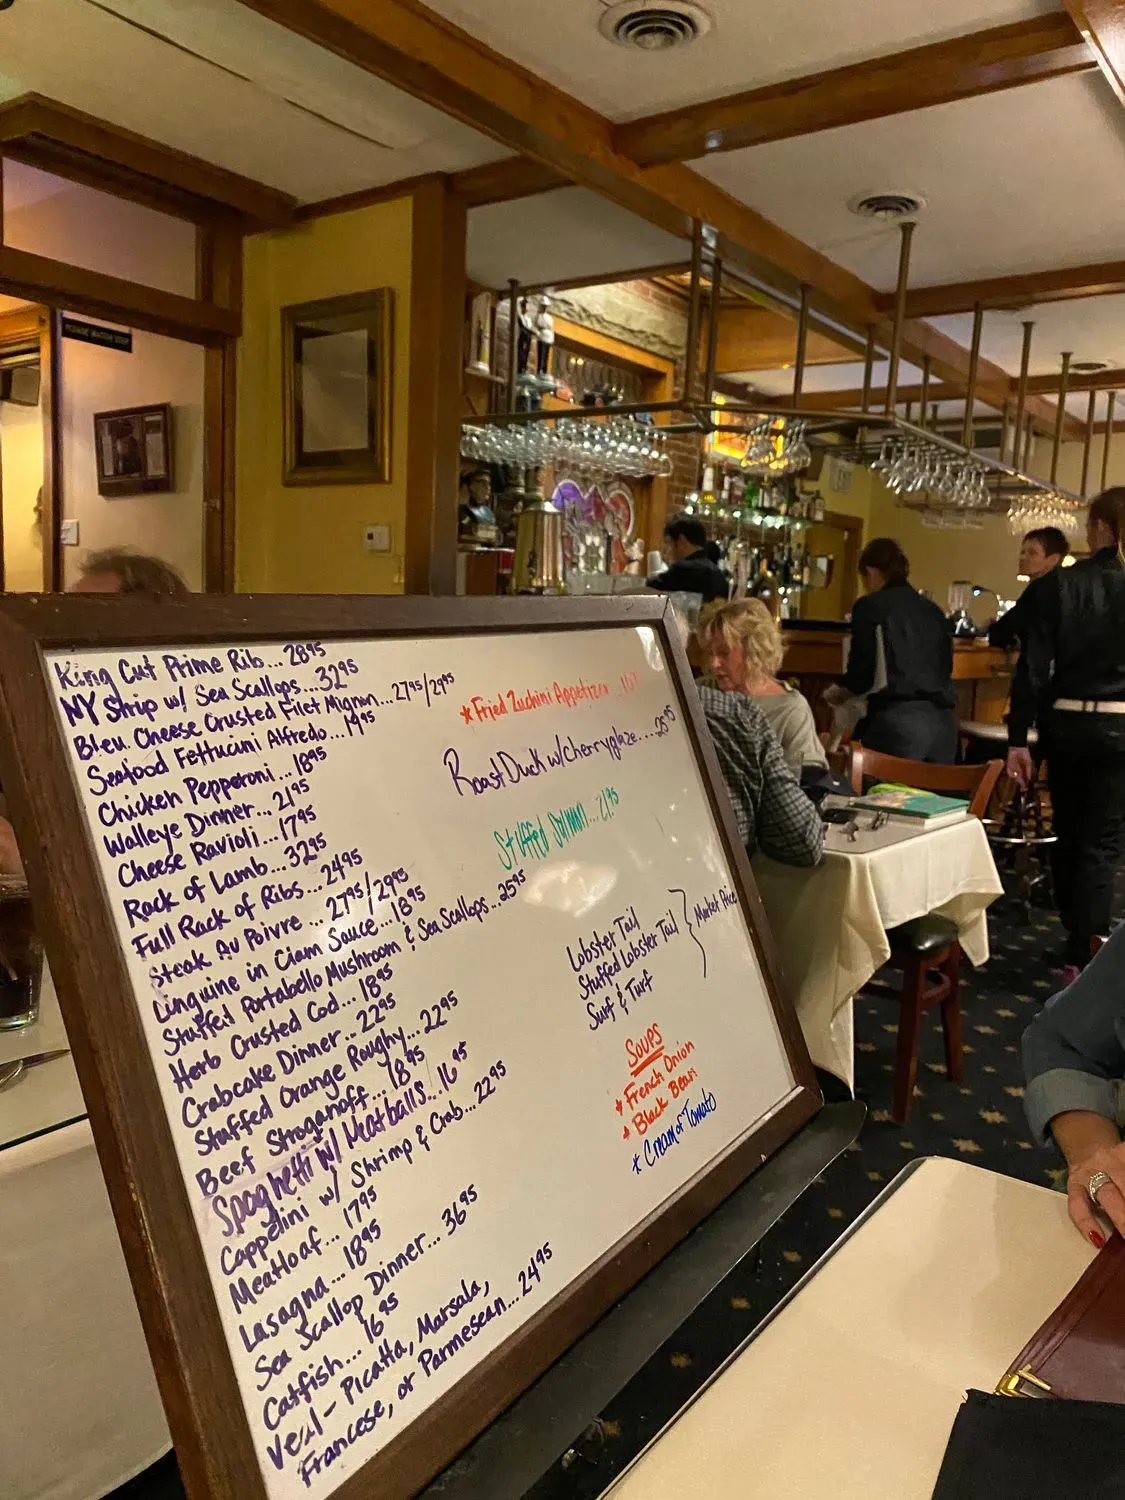 PLEASE WATCH STEP
King Cut Prime Rib... 28⁹⁵
NY Strip w/ Sea Scallops...32⁹⁵
Bleu Cheese Crusted Filet Mignon...27⁹⁵/29⁹⁵
Seafood Fettucini Alfredo...19⁹⁵
Chicken Pepperoni...18⁹⁵
Walleye Dinner...21⁹⁵
Cheese Ravioli...17⁹⁵
Rack of Lamb...32⁹⁵
Full Rack of Ribs...24⁹⁵
Steak Au Poivre...27⁹⁵/29⁹⁵
Linguine in Clam Sauce...18⁹⁵
Stuffed Portabello Mushroom & Sea Scallops...25⁹⁵
Herb Crusted Cod...18⁹⁵
Crabcake Dinner...22⁹⁵
Stuffed Orange Roughy...22⁹⁵
Beef Stroganoff...18⁹⁵
Spaghetti w/ Meatballs...16⁹⁵
Cappelini w/ Shrimp & Crab...22⁹⁵
Meatloaf...17⁹⁵
Lasagna...18⁹⁵
Sea Scallop Dinner...36⁹⁵
Catfish...16⁹⁵
Veal - Picatta, Marsala,
Francese, or Parmesean...24⁹⁵
* Fried Zuchini Appetizer...
Roast Duck w/ cherry glaze....25⁹⁵
Stuffed Salmon...21⁹⁵
Lobster Tail
Stuffed Lobster Tail } Market Price
Surf & Turf
Soups
* French Onion
* Black Bean
* Cream of Tomato